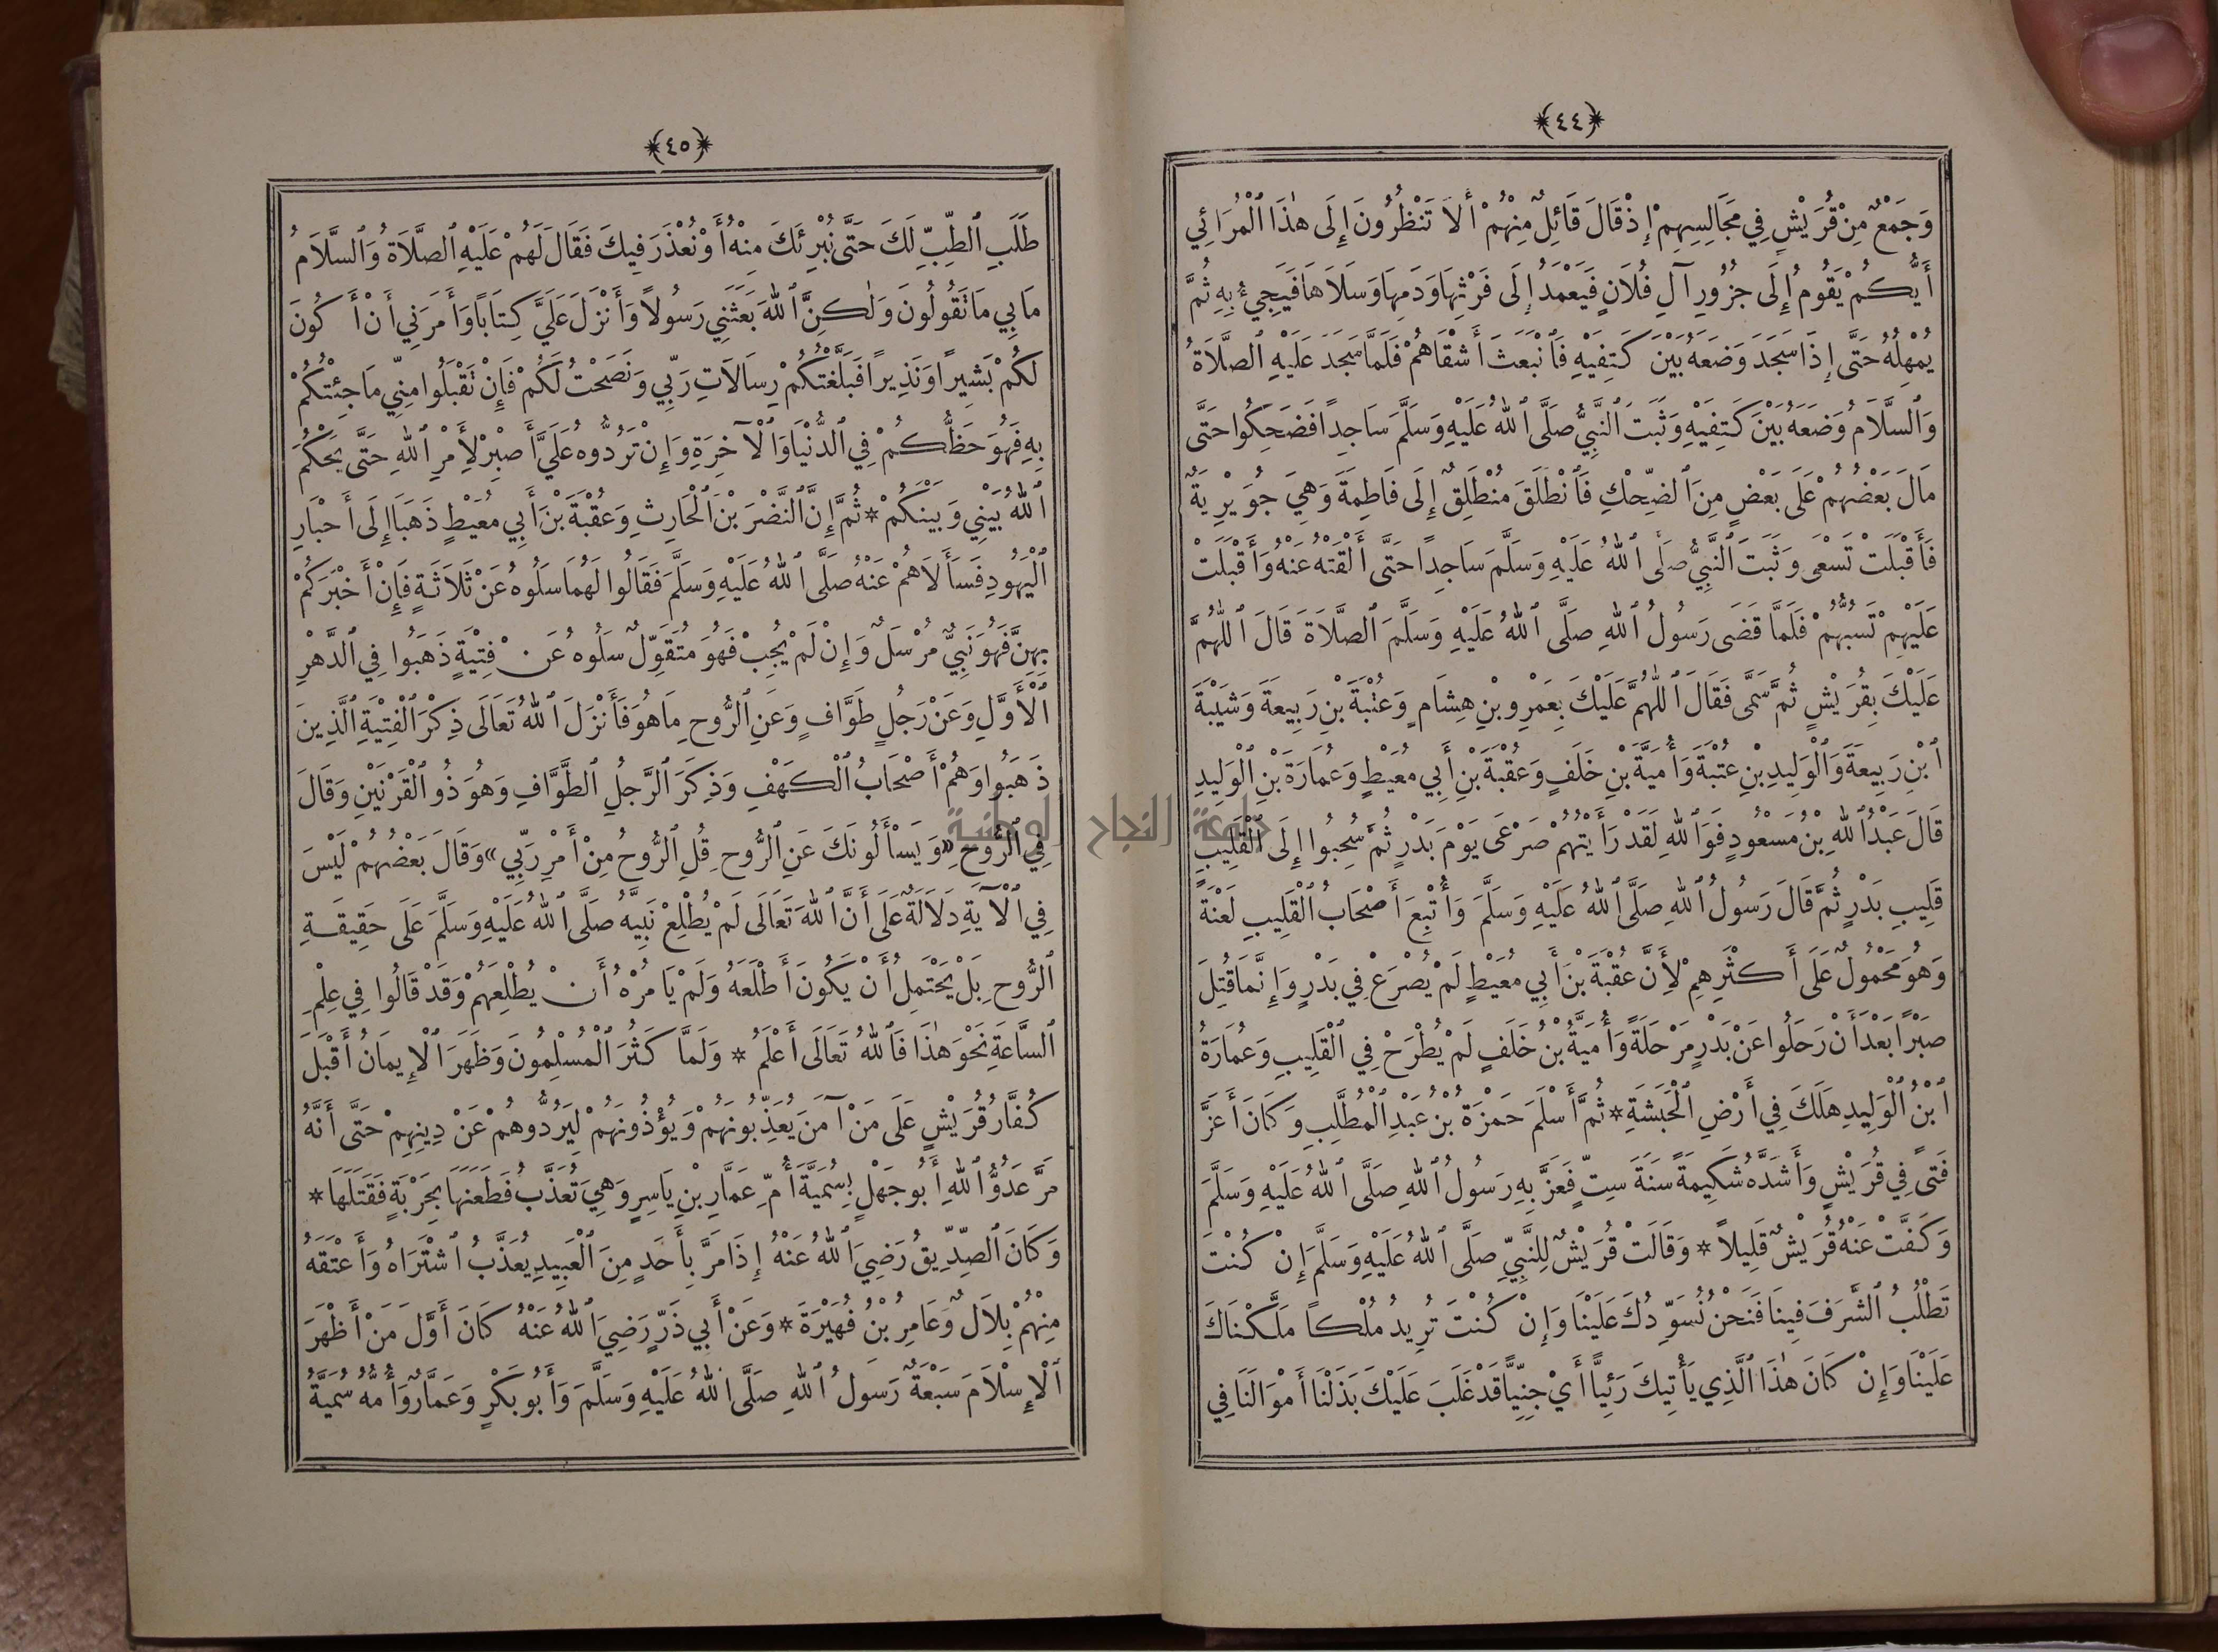 ﴿٤٤﴾
وَجَمْعٌ مِنْ قُرَيْشٍ فِي مَجَالِسِهِمْ إِذْ قَالَ قَائِلٌ مِنْهُمْ أَلاَ تَنْظُرُونَ إِلَى هٰذَا ٱلْمُرَائِي
أَيُّكُمْ يَقُومُ إِلَى جَزُورِ آلِ فُلاَنٍ فَيَعْمَدُ إِلَى فَرْثِهَا وَدَمِهَا وَسَلاَهَا فَيَجِيءُ بِهِ ثُمَّ
يُمْهِلُهُ حَتَّى إِذَا سَجَدَ وَضَعَهُ بَيْنَ كَتِفَيْهِ فَٱنْبَعَثَ أَشْقَاهُمْ فَلَمَّا سَجَدَ عَلَيْهِ ٱلصَّلاَةُ
وَٱلسَّلاَمُ وَضَعَهُ بَيْنَ كَتِفَيْهِ وَثَبَتَ ٱلنَّبِيُّ صَلَّى ٱللهُ عَلَيْهِ وَسَلَّمَ سَاجِدًا فَضَحِكُوا حَتَّى
مَالَ بَعْضُهُمْ عَلَى بَعْضٍ مِنَ ٱلضِّحْكِ فَٱنْطَلَقَ مُنْطَلِقٌ إِلَى فَاطِمَةَ وَهِيَ جُوَيْرِيَةٌ
فَأَقْبَلَتْ تَسْعَى وَثَبَتَ ٱلنَّبِيُّ صَلَّى ٱللهُ عَلَيْهِ وَسَلَّمَ سَاجِدًا حَتَّى أَلْقَتْهُ عَنْهُ وَأَقْبَلَتْ
عَلَيْهِمْ تَسُبُّهُمْ فَلَمَّا قَضَى رَسُولُ ٱللهِ صَلَّى ٱللهُ عَلَيْهِ وَسَلَّمَ ٱلصَّلاَةَ قَالَ ٱللّٰهُمَّ
عَلَيْكَ بِقُرَيْشٍ ثُمَّ سَمَّى فَقَالَ ٱللّٰهُمَّ عَلَيْكَ بِعَمْرِو بْنِ هِشَامٍ وَعُتْبَةَ بْنِ رَبِيعَةَ وَشَيْبَةَ
ٱبْنِ رَبِيعَةَ وَٱلْوَلِيدِ بْنِ عُتْبَةَ وَأُمَيَّةَ بْنِ خَلَفٍ وَعُقْبَةَ بْنِ أَبِي مُعَيْطٍ وَعُمَارَةَ بْنِ ٱلْوَلِيدِ
قَالَ عَبْدُ ٱللهِ بْنُ مَسْعُودٍ فَوَٱللهِ لَقَدْ رَأَيْتُهُمْ صَرْعَى يَوْمَ بَدْرٍ ثُمَّ سُحِبُوا إِلَى ٱلْقَلِيبِ
قَلِيبِ بَدْرٍ ثُمَّ قَالَ رَسُولُ ٱللهِ صَلَّى ٱللهُ عَلَيْهِ وَسَلَّمَ وَأُتْبِعَ أَصْحَابُ ٱلْقَلِيبِ لَعْنَةً
وَهُوَ مَحْمُولٌ عَلَى أَكْثَرِهِمْ لِأَنَّ عُقْبَةَ بْنَ أَبِي مُعَيْطٍ لَمْ يُصْرَعْ فِي بَدْرٍ وَإِنَّمَا قُتِلَ
صَبْرًا بَعْدَ أَنْ رَحَلُوا عَنْ بَدْرٍ مَرْحَلَةً وَأُمَيَّةُ بْنُ خَلَفٍ لَمْ يُطْرَحْ فِي ٱلْقَلِيبِ وَعُمَارَةُ
ٱبْنُ ٱلْوَلِيدِ هَلَكَ فِي أَرْضِ ٱلْحَبَشَةِ * ثُمَّ أَسْلَمَ حَمْزَةُ بْنُ عَبْدِ ٱلْمُطَّلِبِ وَكَانَ أَعَزَّ
فَتًى فِي قُرَيْشٍ وَأَشَدَّهُ شَكِيمَةً سَنَةَ سِتٍّ فَعَزَّ بِهِ رَسُولُ ٱللهِ صَلَّى ٱللهُ عَلَيْهِ وَسَلَّمَ
وَكَفَّتْ عَنْهُ قُرَيْشٌ قَلِيلاً * وَقَالَتْ قُرَيْشٌ لِلنَّبِيِّ صَلَّى ٱللهُ عَلَيْهِ وَسَلَّمَ إِنْ كُنْتَ
تَطْلُبُ ٱلشَّرَفَ فِينَا فَنَحْنُ نُسَوِّدُكَ عَلَيْنَا وَإِنْ كُنْتَ تُرِيدُ مُلْكًا مَلَّكْنَاكَ
عَلَيْنَا وَإِنْ كَانَ هٰذَا ٱلَّذِي يَأْتِيكَ رَئِيًّا أَيْ جِنِّيًّا قَدْ غَلَبَ عَلَيْكَ بَذَلْنَا أَمْوَالَنَا فِي
﴿٤٥﴾
طَلَبِ ٱلطِّبِّ لَكَ حَتَّى نُبْرِئَكَ مِنْهُ أَوْ نُعْذَرَ فِيكَ فَقَالَ لَهُمْ عَلَيْهِ ٱلصَّلاَةُ وَٱلسَّلاَمُ
مَا بِي مَا تَقُولُونَ وَلٰكِنَّ ٱللهَ بَعَثَنِي رَسُولاً وَأَنْزَلَ عَلَيَّ كِتَابًا وَأَمَرَنِي أَنْ أَكُونَ
لَكُمْ بَشِيرًا وَنَذِيرًا فَبَلَّغْتُكُمْ رِسَالاَتِ رَبِّي وَنَصَحْتُ لَكُمْ فَإِنْ تَقْبَلُوا مِنِّي مَا جِئْتُكُمْ
بِهِ فَهُوَ حَظُّكُمْ فِي ٱلدُّنْيَا وَٱلْآخِرَةِ وَإِنْ تَرُدُّوهُ عَلَيَّ أَصْبِرْ لِأَمْرِ ٱللهِ حَتَّى يَحْكُمَ
ٱللهُ بَيْنِي وَبَيْنَكُمْ * ثُمَّ إِنَّ ٱلنَّضْرَ بْنَ ٱلْحَارِثِ وَعُقْبَةَ بْنَ أَبِي مُعَيْطٍ ذَهَبَا إِلَى أَحْبَارِ
ٱلْيَهُودِ فَسَأَلاَهُمْ عَنْهُ صَلَّى ٱللهُ عَلَيْهِ وَسَلَّمَ فَقَالُوا لَهُمَا سَلُوهُ عَنْ ثَلاَثَةٍ فَإِنْ أَخْبَرَكُمْ
بِهِنَّ فَهُوَ نَبِيٌّ مُرْسَلٌ وَإِنْ لَمْ يُجِبْ فَهُوَ مُتَقَوِّلٌ سَلُوهُ عَنْ فِتْيَةٍ ذَهَبُوا فِي ٱلدَّهْرِ
ٱلْأَوَّلِ وَعَنْ رَجُلٍ طَوَّافٍ وَعَنِ ٱلرُّوحِ مَا هُوَ فَأَنْزَلَ ٱللهُ تَعَالَى ذِكْرَ ٱلْفِتْيَةِ ٱلَّذِينَ
ذَهَبُوا وَهُمْ أَصْحَابُ ٱلْكَهْفِ وَذِكْرَ ٱلرَّجُلِ ٱلطَّوَّافِ وَهُوَ ذُو ٱلْقَرْنَيْنِ وَقَالَ
فِي ٱلرُّوحِ «وَيَسْأَلُونَكَ عَنِ ٱلرُّوحِ قُلِ ٱلرُّوحُ مِنْ أَمْرِ رَبِّي» وَقَالَ بَعْضُهُمْ لَيْسَ
فِي ٱلْآيَةِ دَلاَلَةٌ عَلَى أَنَّ ٱللهَ تَعَالَى لَمْ يُطْلِعْ نَبِيَّهُ صَلَّى ٱللهُ عَلَيْهِ وَسَلَّمَ عَلَى حَقِيقَةِ
ٱلرُّوحِ بَلْ يَحْتَمِلُ أَنْ يَكُونَ أَطْلَعَهُ وَلَمْ يَأْمُرْهُ أَنْ يُطْلِعَهُمْ وَقَدْ قَالُوا فِي عِلْمِ
ٱلسَّاعَةِ نَحْوَ هٰذَا فَٱللهُ تَعَالَى أَعْلَمُ * وَلَمَّا كَثُرَ ٱلْمُسْلِمُونَ وَظَهَرَ ٱلْإِيمَانُ أَقْبَلَ
كُفَّارُ قُرَيْشٍ عَلَى مَنْ آمَنَ يُعَذِّبُونَهُمْ وَيُؤْذُونَهُمْ لِيَرُدُّوهُمْ عَنْ دِينِهِمْ حَتَّى أَنَّهُ
مَرَّ عَدُوُّ ٱللهِ أَبُو جَهْلٍ بِسُمَيَّةَ أُمِّ عَمَّارِ بْنِ يَاسِرٍ وَهِيَ تُعَذَّبُ فَطَعَنَهَا بِحَرْبَةٍ فَقَتَلَهَا *
وَكَانَ ٱلصِّدِّيقُ رَضِيَ ٱللهُ عَنْهُ إِذَا مَرَّ بِأَحَدٍ مِنَ ٱلْعَبِيدِ يُعَذَّبُ ٱشْتَرَاهُ وَأَعْتَقَهُ
مِنْهُمْ بِلاَلٌ وَعَامِرُ بْنُ فُهَيْرَةَ * وَعَنْ أَبِي ذَرٍّ رَضِيَ ٱللهُ عَنْهُ كَانَ أَوَّلَ مَنْ أَظْهَرَ
ٱلْإِسْلاَمَ سَبْعَةٌ رَسُولُ ٱللهِ صَلَّى ٱللهُ عَلَيْهِ وَسَلَّمَ وَأَبُو بَكْرٍ وَعَمَّارٌ وَأُمُّهُ سُمَيَّةُ
جامعة النجاح الوطنية